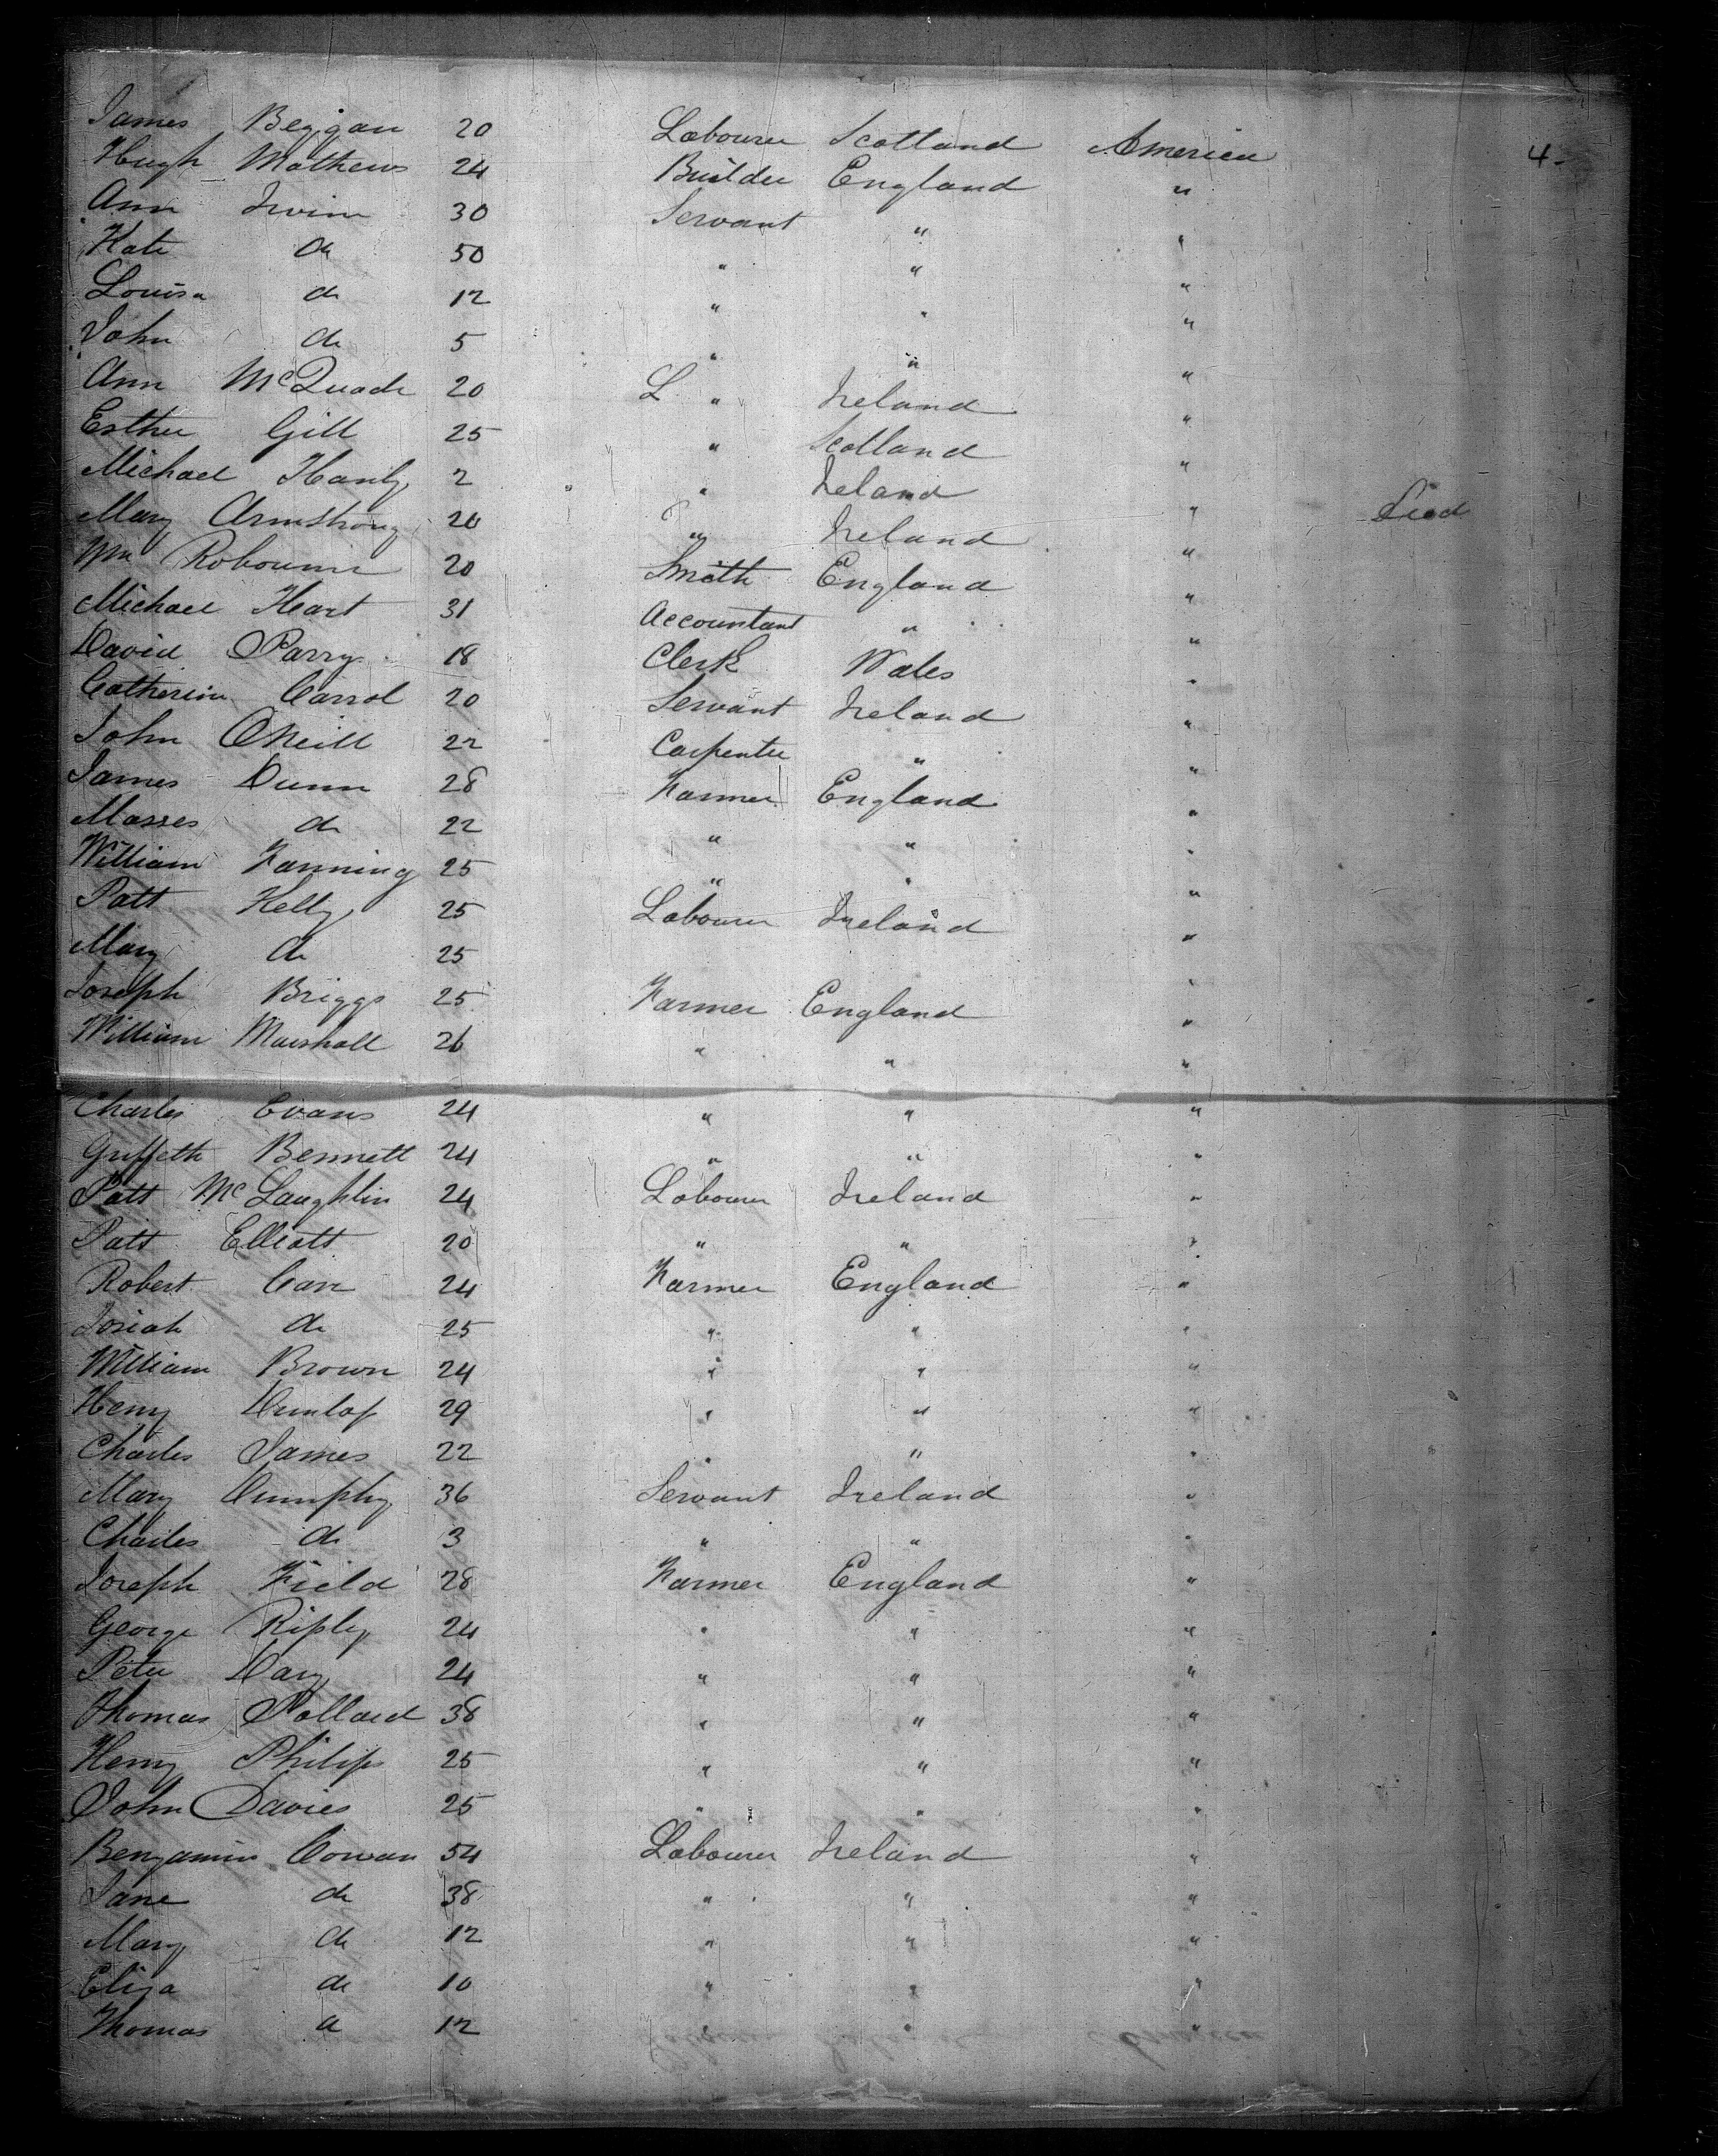 James Beggan 20 Labourer Scotland America 4.
Hugh Mathews 24 Builder England "
Ann Irvine 30 Servant " "
Kate do 50 " " "
Louisa do 12 " " "
John do 5 " " "
Ann McQuade 20 L " Ireland "
Esther Gill 25 " Scotland "
Michael Hanly 2 " Ireland " Died
Mary Armstrong 20 " Ireland "
Wm 20 Smith England "
Michael Hart 31 Accountant " "
David Parry 18 Clerk Wales "
Catherine Carrol 20 Servant Ireland "
John ONeill 22 Carpenter " "
James Dunn 28 Farmer England "
Masses do 22 " " "
William Fanning 25 " " "
Patt Kelly 25 Labourer Ireland "
Mary do 25 "
Joseph Briggs 25 Farmer England "
William Marshall 26 " " "
Charles Evans 24 " " "
Griffeth Bennett 24 " " "
Patt McLaughlin 24 Labourer Ireland "
Patt Elliott 20 " " "
Robert Carr 24 Farmer England "
Josiah do 25 " " "
William Brown 24 " " "
Henry Dunlop 29 " " "
Charles James 22 " " "
Mary Dumphy 36 Servant Ireland "
Charles do 3 " " "
Joseph Field 28 Farmer England "
George Ripley 24 " " "
Peter Day 24 " " "
Thomas Pollard 38 " " "
Henry Philips 25 " " "
John Davies 25 " " "
Benjamin Cowan 54 Labourer Ireland "
Jane do 38 " " "
Mary do 12 " " "
Eliza do 10 " " "
Thomas do 12 " " "